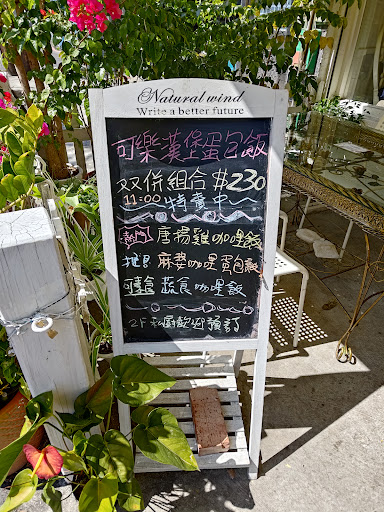 Natural wind
Write a better future
可樂漢堡蛋包飯
双併組合 $230
11:00 特業中
熱門 唐揚雞咖哩飯
推 麻婆咖哩蛋包飯
可素食 蔬食咖哩飯
2F 私廚歡迎預訂